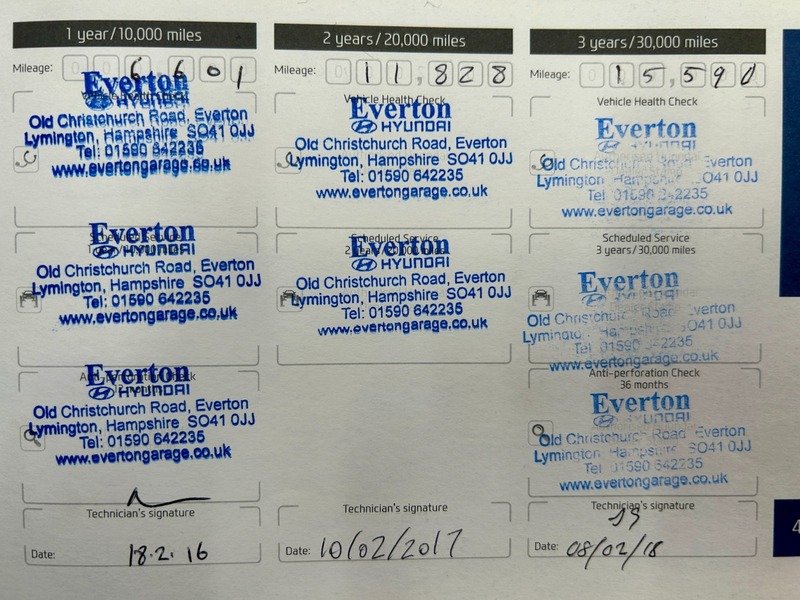 1 year/10,000 miles
Mileage: 6 6 0 1
Everton
HYUNDAI
Old Christchurch Road, Everton
Lymington, Hampshire SO41 0JJ
Tel: 01590 642235
www.evertongarage.co.uk
Everton
HYUNDAI
Old Christchurch Road, Everton
Lymington, Hampshire SO41 0JJ
Tel: 01590 642235
www.evertongarage.co.uk
Everton
HYUNDAI
Old Christchurch Road, Everton
Lymington, Hampshire SO41 0JJ
Tel: 01590 642235
www.evertongarage.co.uk
Technician's signature
Date: 18.2.16
2 years/20,000 miles
Mileage: 11,828
Vehicle Health Check
Everton
HYUNDAI
Old Christchurch Road, Everton
Lymington, Hampshire SO41 0JJ
Tel: 01590 642235
www.evertongarage.co.uk
Scheduled Service
Everton
HYUNDAI
Old Christchurch Road, Everton
Lymington, Hampshire SO41 0JJ
Tel: 01590 642235
www.evertongarage.co.uk
Technician's signature
Date: 10/02/2017
3 years/30,000 miles
Mileage: 15,590
Vehicle Health Check
Everton
HYUNDAI
Old Christchurch Road, Everton
Lymington, Hampshire SO41 0JJ
Tel 01590 642235
www.evertongarage.co.uk
Scheduled Service
3 years/30,000 miles
Everton
Old Christchurch Road, Everton
Lymington, Hampshire SO41 0JJ
Tel 01590 642235
www.evertongarage.co.uk
Anti-perforation Check
36 months
Everton
HYUNDAI
Old Christchurch Road, Everton
Lymington, Hampshire SO41 0JJ
Tel 01590 642235
www.evertongarage.co.uk
Technician's signature
Date: 08/02/18
4